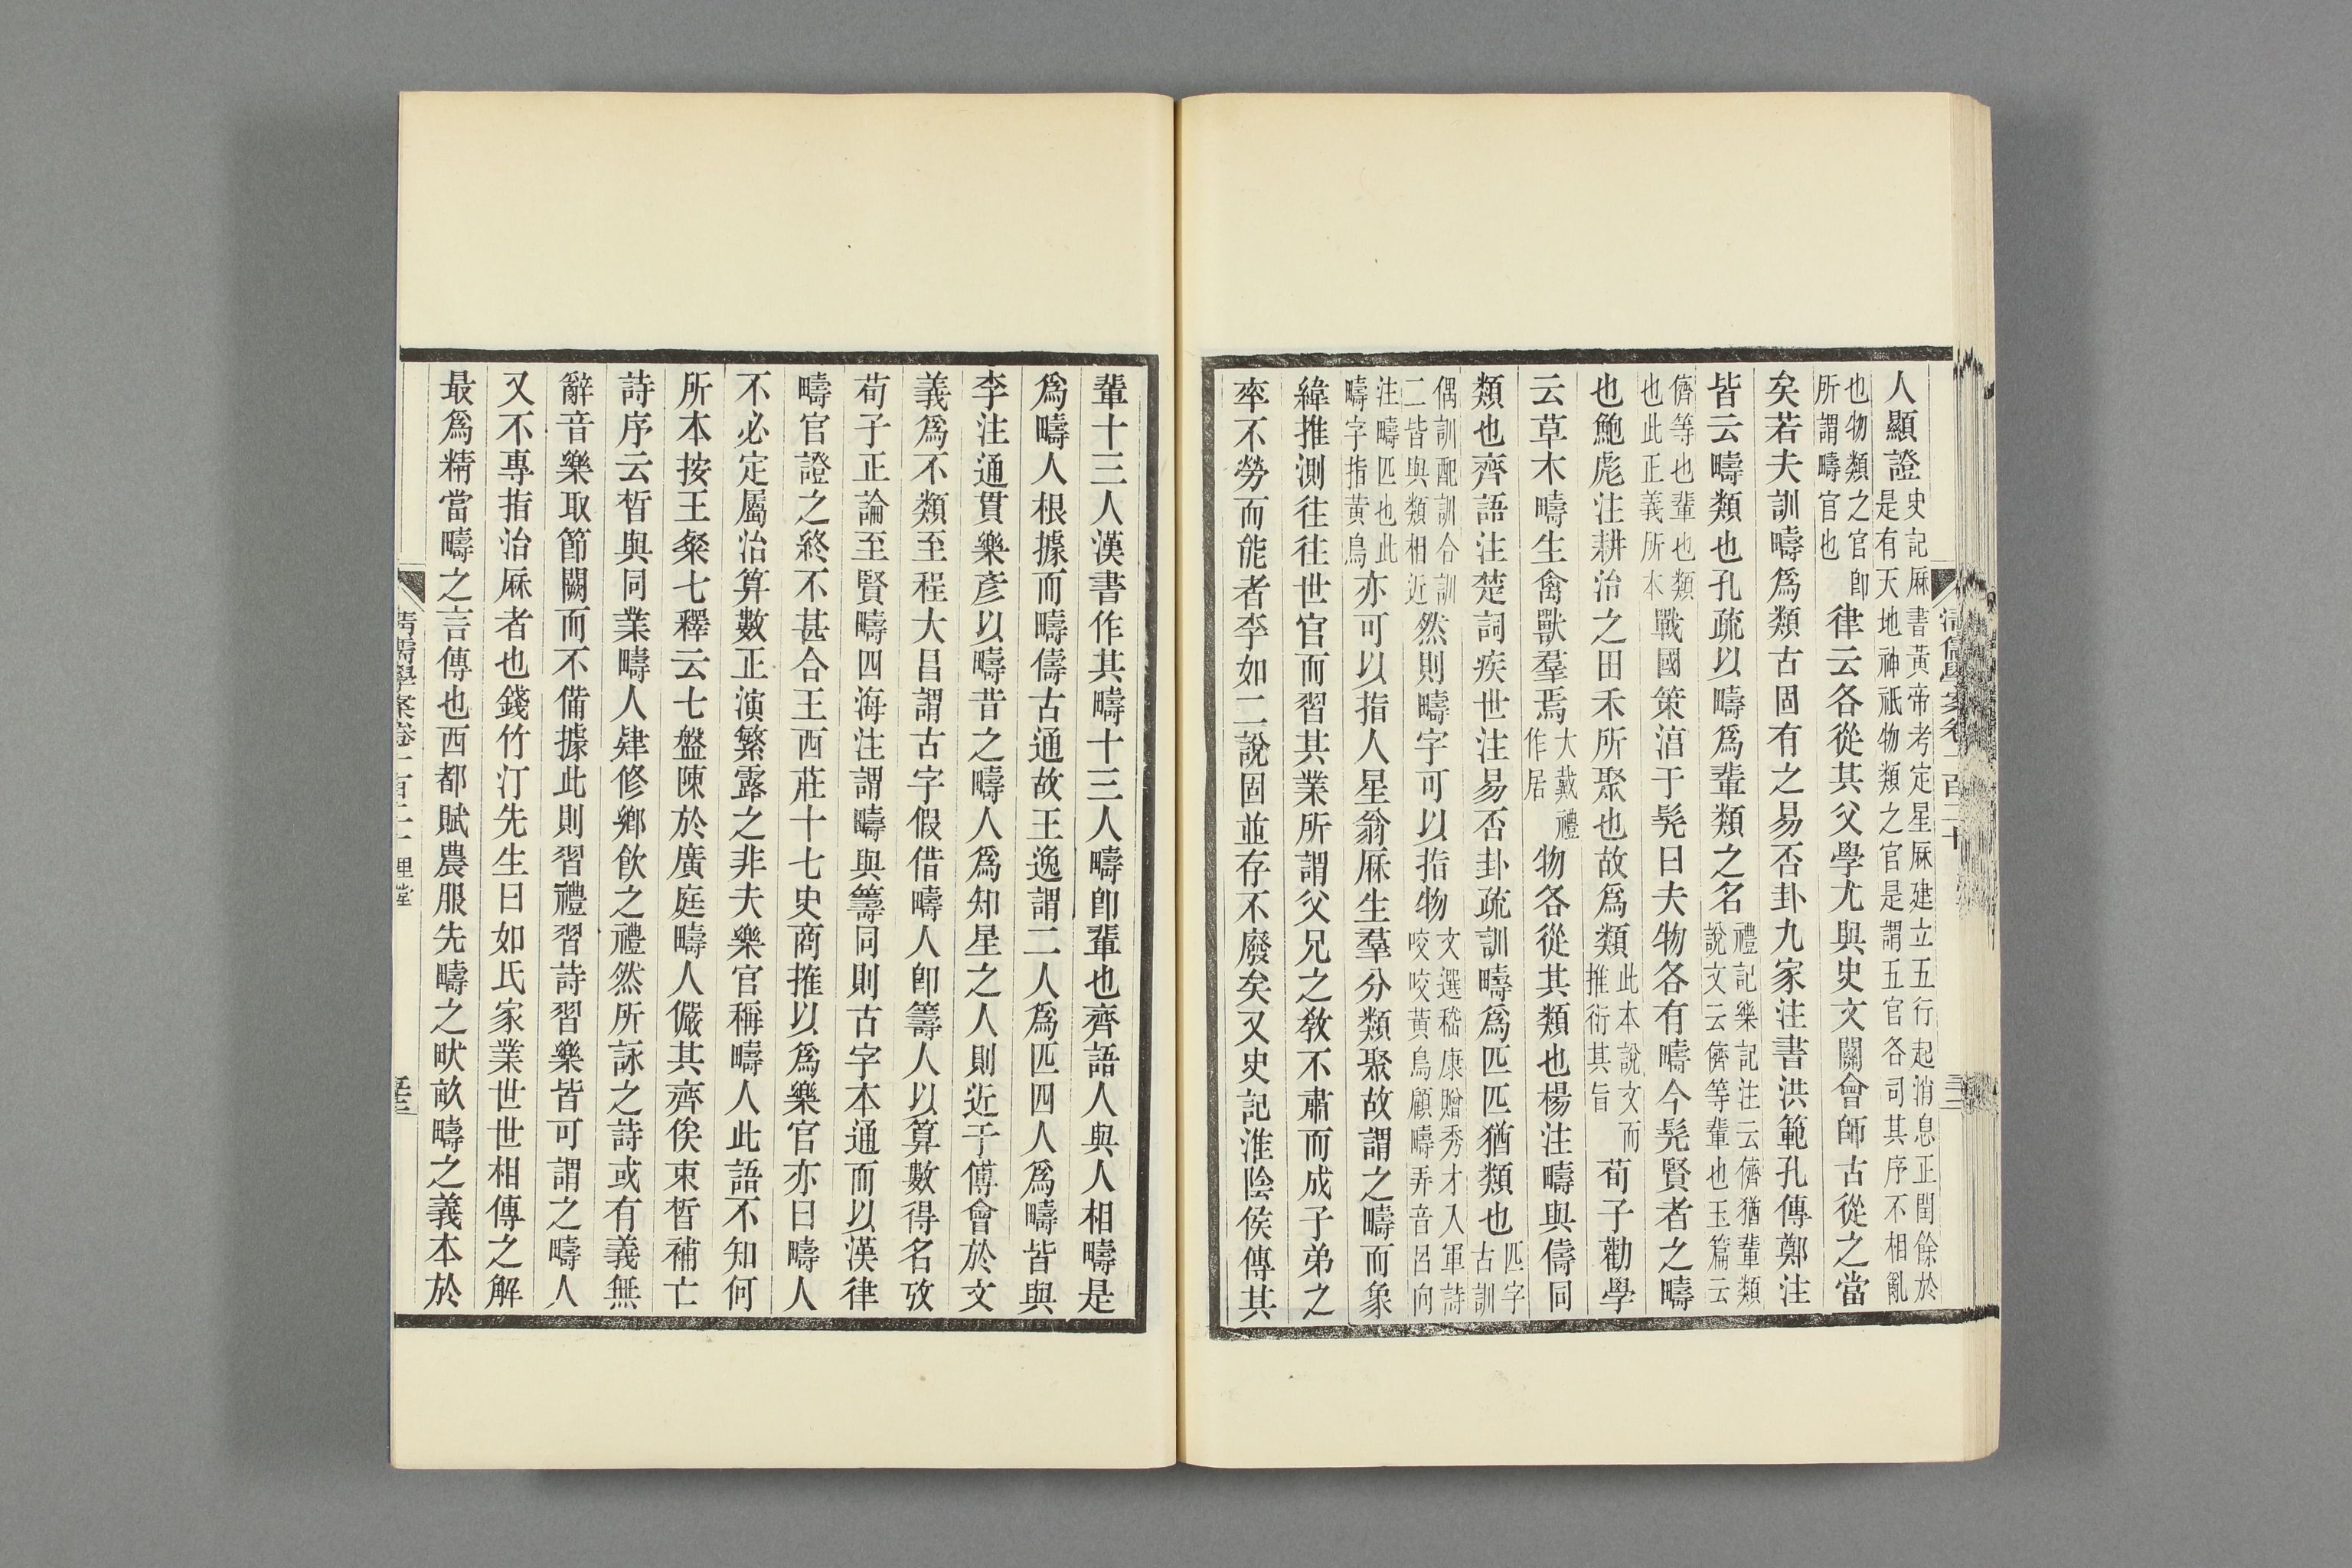 人顯證史記厤書黃帝考定星厤建立五行起消息正閏餘於是有天地神祇物類之官是謂五官各司其序不相亂
也物類之官卽所謂疇官也律云各從其父學尤與史文闇會師古從之當
矣若夫訓疇爲類古固有之易否卦九家注書洪範孔傳鄭注
皆云疇類也孔疏以疇爲輩類之名禮記樂記注云儕猶輩類說文云儕等輩也玉篇云
儕等也輩也類也此正義所本戰國策淳于髡曰夫物各有疇今髡賢者之疇
也鮑彪注耕治之田禾所聚也故爲類此本說文而推衍其旨荀子勸學
云草木疇生禽獸羣焉大戴禮作居物各從其類也楊注疇與儔同
類也齊語注楚詞疾世注易否卦疏訓疇爲匹匹猶類也匹字古訓
偶訓配訓合訓二皆與類相近然則疇字可以指物文選嵇康贈秀才入軍詩咬咬黃鳥顧疇弄音呂向
注疇匹也此疇字指黃鳥亦可以指人星翁厤生羣分類聚故謂之疇而象
緯推測往往世官而習其業所謂父兄之敎不肅而成子弟之
率不勞而能者李如二說固並存不廢矣又史記淮陰侯傳其
清儒學案卷一百二十
輩十三人漢書作其疇十三人疇卽輩也齊語人與人相疇是
爲疇人根據而疇儔古通故王逸謂二人爲匹四人爲疇皆與
李注通貫樂彥以疇昔之疇人爲知星之人則近于傅會於文
義爲不類至程大昌謂古字假借疇人卽籌人以算數得名攷
荀子正論至賢疇四海注謂疇與籌同則古字本通而以漢律
疇官證之終不甚合王西莊十七史商搉以爲樂官亦曰疇人
不必定屬治算數正演繁露之非夫樂官稱疇人此語不知何
所本按王粲七釋云七盤陳於廣庭疇人儼其齊俟束晳補亡
詩序云晳與同業疇人肄修鄉飲之禮然所詠之詩或有義無
辭音樂取節闕而不備據此則習禮習詩習樂皆可謂之疇人
又不專指治厤者也錢竹汀先生曰如氏家業世世相傳之解
最爲精當疇之言傳也西都賦農服先疇之畎畝疇之義本於
清儒學案卷一百二十 里堂